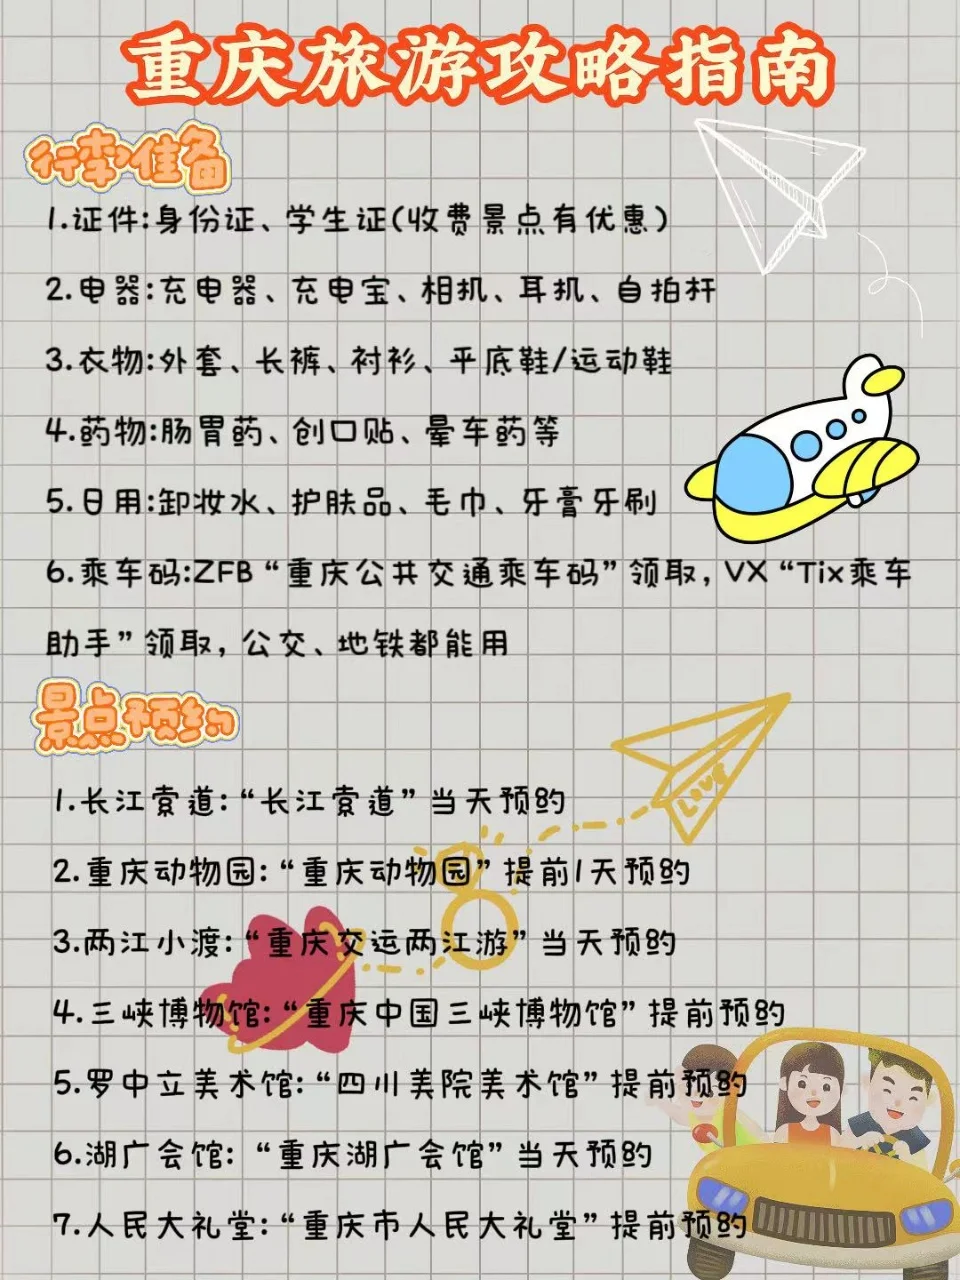 重庆旅游攻略指南
行李准备
1.证件:身份证、学生证(收费景点有优惠)
2.电器:充电器、充电宝、相机、耳机、自拍杆
3.衣物:外套、长裤、衬衫、平底鞋/运动鞋
4.药物:肠胃药、创口贴、晕车药等
5.日用:卸妆水、护肤品、毛巾、牙膏牙刷
6.乘车码:ZFB“重庆公共交通乘车码”领取,VX“Tix乘车
助手”领取,公交、地铁都能用
景点预约
LOVE
1.长江索道:“长江索道”当天预约
2.重庆动物园:“重庆动物园”提前1天预约
3.两江小渡:“重庆交运两江游”当天预约
4.三峡博物馆:“重庆中国三峡博物馆”提前预约
5.罗中立美术馆:“四川美院美术馆”提前预约
6.湖广会馆:“重庆湖广会馆”当天预约
7.人民大礼堂:“重庆市人民大礼堂”提前预约